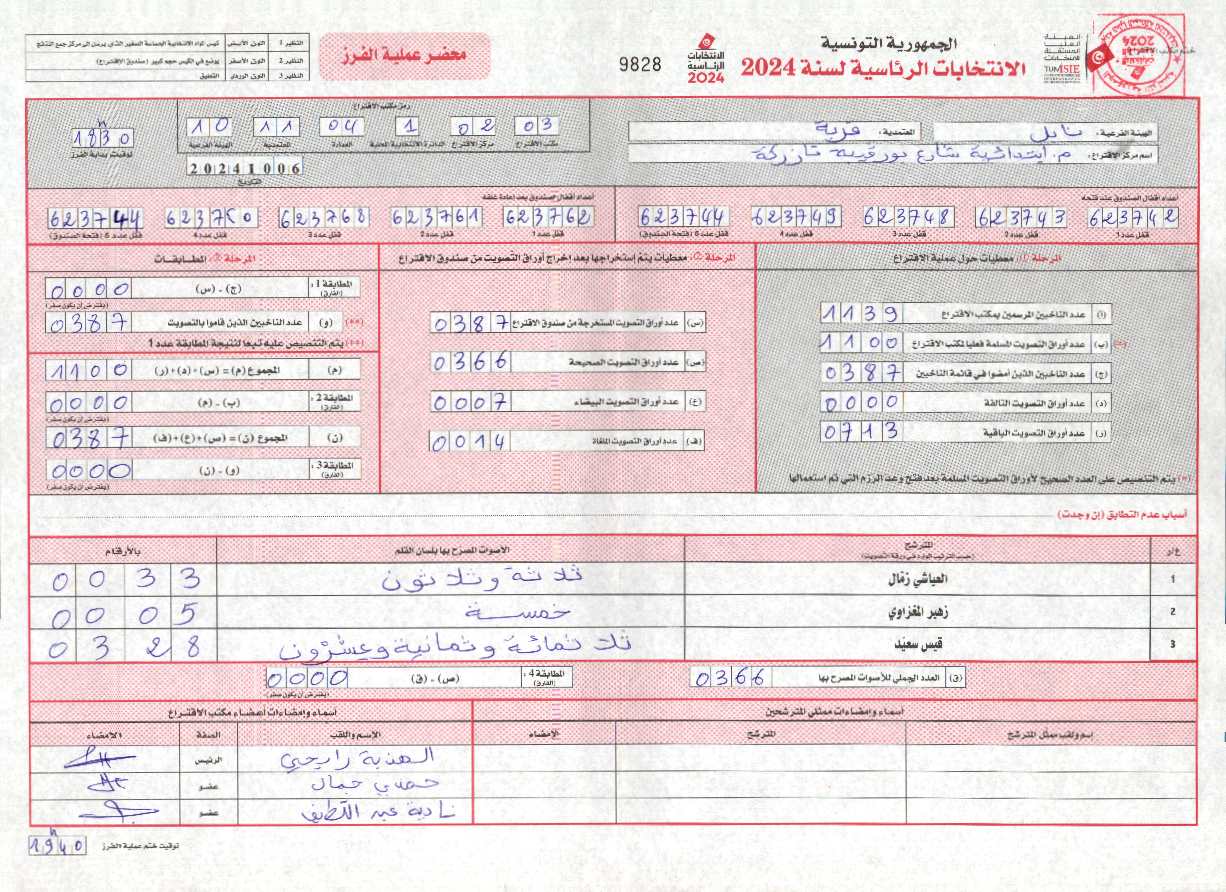 الجمهورية التونسية
الانتخابات الرئاسية لسنة 2024
الهيئة العليا المستقلة للانتخابات
الانتخابات الرئاسية 2024
9828
محضر عملية الفرز
النظير 1 اللون الأبيض
النظير 2 اللون الأصفر يوضع في الكيس حجم كبير (صندوق الاقتراع)
النظير 3 اللون الوردي التعليق
ختم مكتب الاقتراع
الهيئة الفرعية: نابل المعتمدية: قربة
اسم مركز الاقتراع: م. ابتدائية شارع بورقيبة تازركة
رمز مكتب الاقتراع
03 02 1 04 11 10
مكتب الاقتراع مركز الاقتراع الدائرة الانتخابية المحلية العمادة المعتمدية الهيئة الفرعية
20241006
التاريخ
18h30
توقيت بداية الفرز
أعداد أقفال الصندوق عند فتحه
623742 623743 623748 623749 623744
قفل عدد 1 قفل عدد 2 قفل عدد 3 قفل عدد 4 قفل عدد 5 (فتحة الصندوق)
أعداد أقفال الصندوق بعد إعادة غلقه
623762 623761 623768 623750 623744
قفل عدد 1 قفل عدد 2 قفل عدد 3 قفل عدد 4 قفل عدد 5 (فتحة الصندوق)
المرحلة (1): معطيات حول عملية الاقتراع
(أ) عدد الناخبين المرسمين بمكتب الاقتراع 1139
(*) (ب) عدد أوراق التصويت المسلمة فعليا لمكتب الاقتراع 1100
(ج) عدد الناخبين الذين أمضوا في قائمة الناخبين 0387
(د) عدد أوراق التصويت التالفة 0000
(ر) عدد أوراق التصويت الباقية 0713
(*) يتم التنصيص على العدد الصحيح لأوراق التصويت المسلمة بعد فتح وعد الرزم التي تم استعمالها
المرحلة (2): معطيات يتم إستخراجها بعد إخراج أوراق التصويت من صندوق الاقتراع
(س) عدد أوراق التصويت المستخرجة من صندوق الاقتراع 0387
(ص) عدد أوراق التصويت الصحيحة 0366
(ع) عدد أوراق التصويت البيضاء 0007
(ف) عدد أوراق التصويت الملغاة 0014
المرحلة (3): المطابقات
المطابقة 1: (الفارق) (ج) - (س) 0000
(يفترض أن يكون صفر)
(**) (و) عدد الناخبين الذين قاموا بالتصويت 0387
(**) يتم التنصيص عليه تبعا لنتيجة المطابقة عدد 1
(م) المجموع (م) = (س)+(د)+(ر) 1100
المطابقة 2: (الفارق) (ب) - (م) 0000
(يفترض أن يكون صفر)
(ن) المجموع (ن) = (ص)+(ع)+(ف) 0387
المطابقة 3: (الفارق) (و) - (ن) 0000
(يفترض أن يكون صفر)
أسباب عدم التطابق (إن وجدت)
ع/ر المترشح الأصوات المصرح بها بلسان القلم بالأرقام
(حسب الترتيب الوارد في ورقة التصويت)
1 العياشي زمّال ثلاثة وثلاثون 0033
2 زهير المغزاوي خمسة 0005
3 قيس سعيّد ثلاثمائة وثمانية وعشرون 0328
(ق) العدد الجملي للأصوات المصرح بها 0366
المطابقة 4: (الفارق) (ص) - (ق) 0000
(يفترض أن يكون صفر)
أسماء وامضاءات ممثلي المترشحين
إسم ولقب ممثل المترشح المترشح الإمضاء
أسماء وامضاءات أعضاء مكتب الاقتراع
الإسم واللقب الصفة الامضاء
رابحي الرئيس
حمدي جمال عضو
نادية عبد اللطيف عضو
19h40
توقيت ختم عملية الفرز